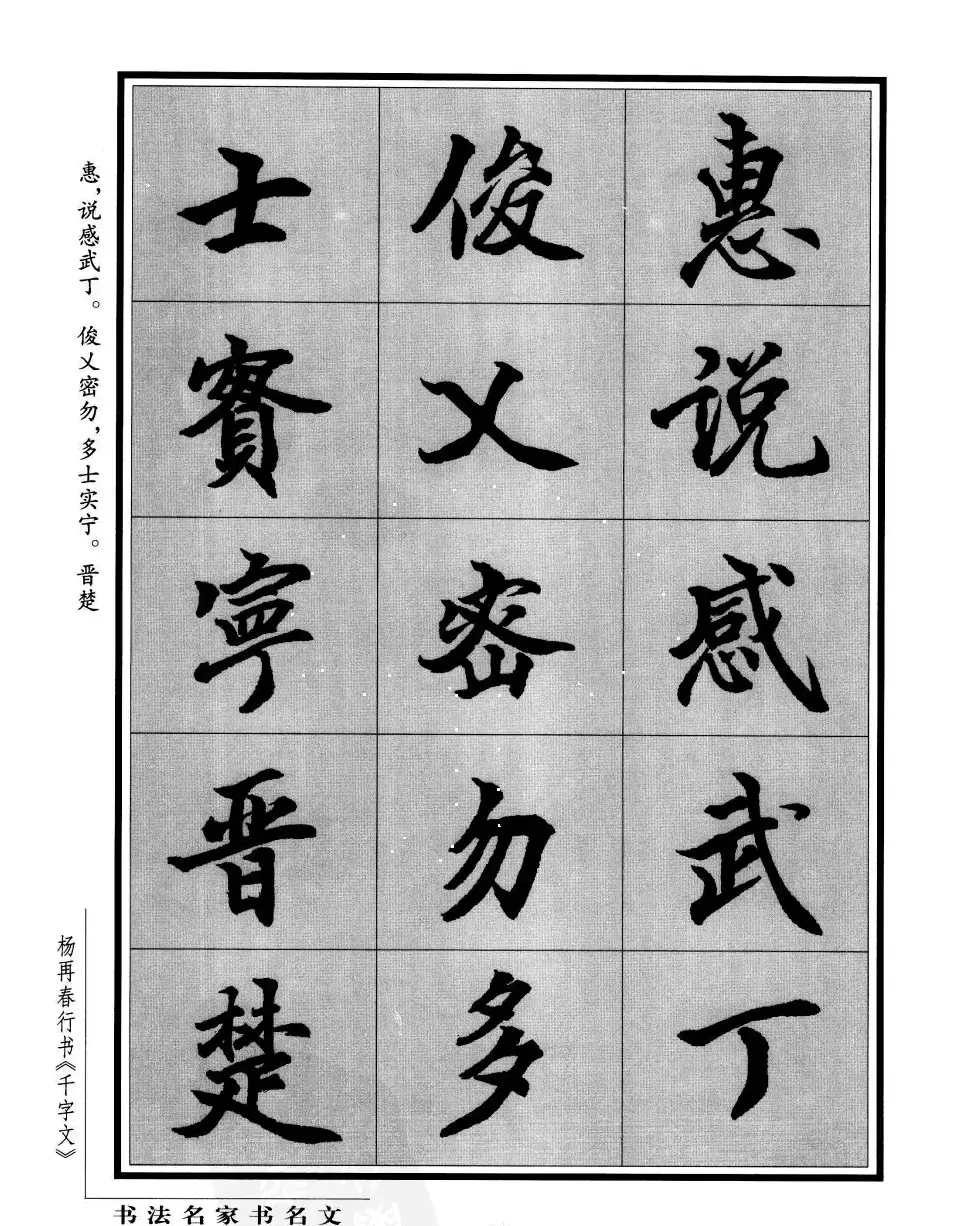 惠说感武丁
俊乂密勿多
士實寧晋楚
惠，说感武丁。俊乂密勿，多士实宁。晋楚
杨再春行书《千字文》
书法名家书名文